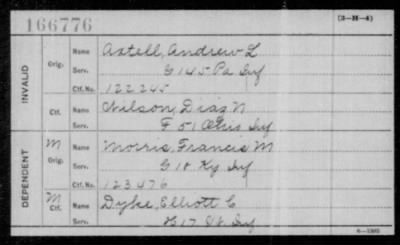 166776 (3-H-4)
INVALID
Orig. Name Axtell, Andrew L
Serv. G 145 Pa Inf
Ctf. No. 122245
Ctf. Name Wilson, Dias N
Serv. F 51 Ohio Inf
DEPENDENT
M Orig. Name Morris, Francis M
Serv. G 18 Ky Inf
123476
M Ctf. Name Dyke, Elliott C
Serv. 17 Inf